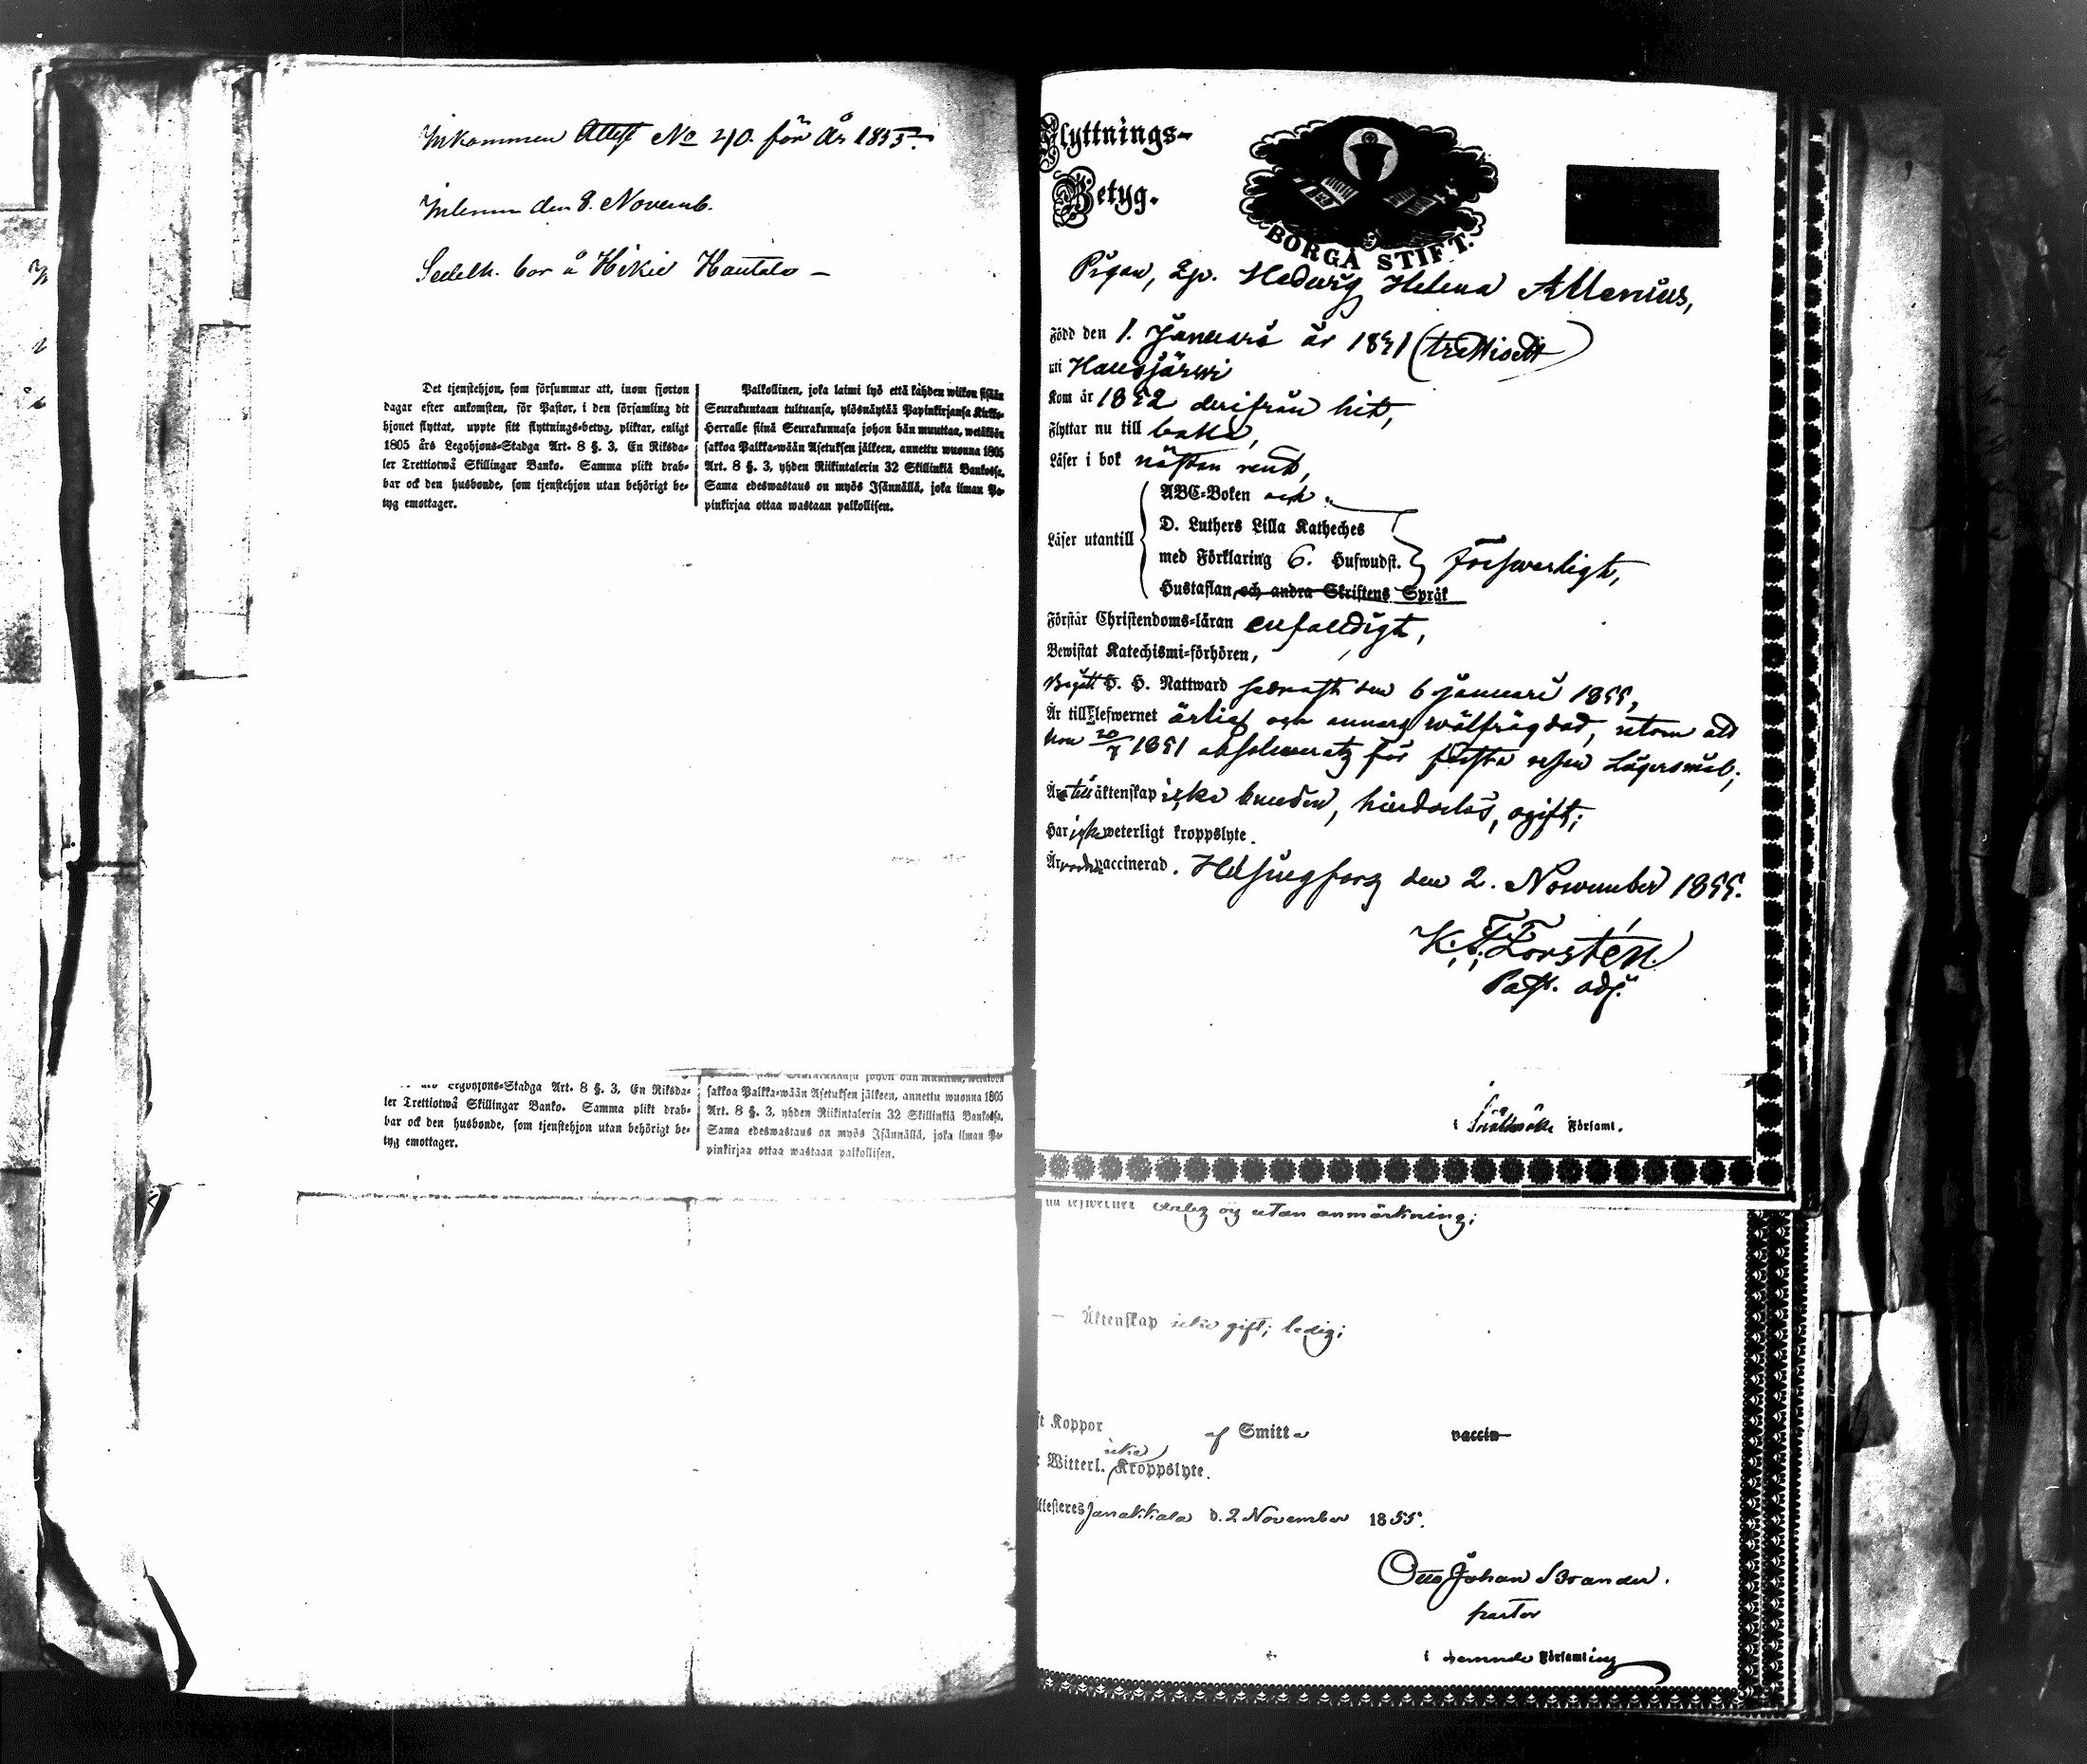 Inkommen Attest No 40. för år 1855.
Inlemn den 8. Novemb.
Sedelh. bor å Hikiä Hautala –
Det tjenstehjon, som försummar att, inom fjorton
dagar efter ankomsten, för Pastor, i den församling dit
hjonet flyttat, uppte sitt flyttnings-betyg, pliktar, enligt
1805 års Legohjons-Stadga Art. 8 §. 3, En Riksda-
ler Trettiotwå Skillingar Banko. Samma plikt drab-
bar ock den husbonde, som tjenstehjon utan behörigt be-
tyg emottager.
Palkollinen, joka laimi lyö että kahden wiikon sisään
Seurakuntaan tultuansa, ylösnäytää Papinkirjansa Kirkko-
Herralle siinä Seurakunnasa johon hän muuttaa, wetäköön
sakkoa Palkka-wään Asetuksen jälkeen, annettu wuonna 1805
Art. 8 §. 3, yhden Riikintalerin 32 Skillinkiä Bankossa.
Sama edeswastaus on myös Isännällä, joka ilman Pa-
pinkirjaa ottaa wastaan palkollisen.
Legohjons-Stadga Art. 8 §. 3, En Riksda-
ler Trettiotwå Skillingar Banko. Samma plikt drab-
bar ock den husbonde, som tjenstehjon utan behörigt be-
tyg emottager.
Seurakunnasa johon hän muuttaa, wetäköön
sakkoa Palkka-wään Asetuksen jälkeen, annettu wuonna 1805
Art. 8 §. 3, yhden Riikintalerin 32 Skillinkiä Bankossa.
Sama edeswastaus on myös Isännällä, joka ilman Pa-
pinkirjaa ottaa wastaan palkollisen.
Flyttnings-
Betyg.
BORGÅ STIFT.
Pigan, Hedwig Helena Allenius,
Född den 1. Januari år 1831 (trettioett)
uti Hausjärwi
Kom år 1852 derifrån hit,
Flyttar nu till baka,
Läser i bok nästan rent,
Läser utantill
ABC-Boken och
D. Luthers Lilla Katheches
med Förklaring 6. Hufwudst.
Hustaflan och andra Skriftens Språk
försvarligt,
Förstår Christendoms-läran enfaldigt,
Bewistat Katechismi-förhören,
Begått H. H. Nattward sednast den 6 januari 1855,
Är till Lefwernet ärlig och annars wälfrägdad, utom att
hon 20/7 1851 absolverats för första resan Lägersmål;
Är till äktenskap icke bunden, hinderlös, ogift;
Har icke weterligt kroppslyte.
Är vaccinerad. Helsingfors den 2. November 1855.
K. F. Forstén.
Past. adj.
i Församl.
lefwernet ärlig og utan anmärkning;
– Äktenskap icke gift; ledig;
Koppor af Smitta vaccin
Witterl. icke Kroppslyte.
Attesteres Janakkala d. 2 November 1855.
Otto Johan Brander.
pastor
i samma Församling